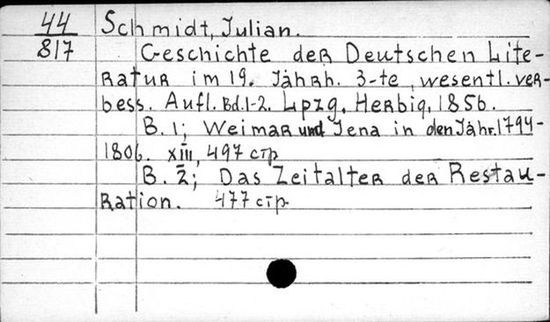 44
817
Schmidt, Julian.
Geschichte der Deutschen Lite-
ratur im 19. Jahrh. 3-te, wesentl. ver-
bess. Aufl. Bd. 1-2. Lpzg, Herbig, 1856.
B. 1; Weimar und Jena in den Jahr. 1794-
1806. XIII, 497 стр
B. 2; Das Zeitalter der Restau-
ration. 477 стр.